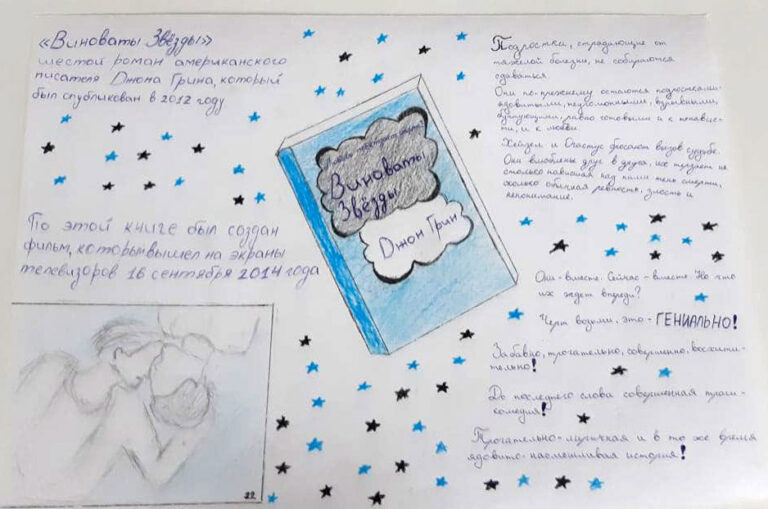 «Виноваты Звёзды»
шестой роман американского
писателя Джона Грина, который
был опубликован в 2012 году.
По этой книге был создан
фильм, который вышел на экраны
телевизоров 16 сентября 2014 года
22
Виноваты
Звёзды
Джон Грин
Подростки, страдающие от
тяжелой болезни, не собираются
сдаваться.
Они по-прежнему остаются подростками-
ядовитыми, неугомонными, взрывными,
бунтующими, равно готовыми и к ненавис-
ти, и к любви.
Хейзел и Огастус бросают вызов судьбе.
Они влюблены друг в друга, их терзает не
столько нависшая над ними тень смерти,
сколько обычная ревность, злость и
непонимание.
Они - вместе. Сейчас - вместе. Но что
их ждет впереди?
Черт возьми, это - ГЕНИАЛЬНО!
Забавно, трогательно, совершенно, восхити-
тельно!
До последнего слова совершенная траги-
комедия!
Трогательно-лиричная и в то же время
ядовито-насмешливая история!